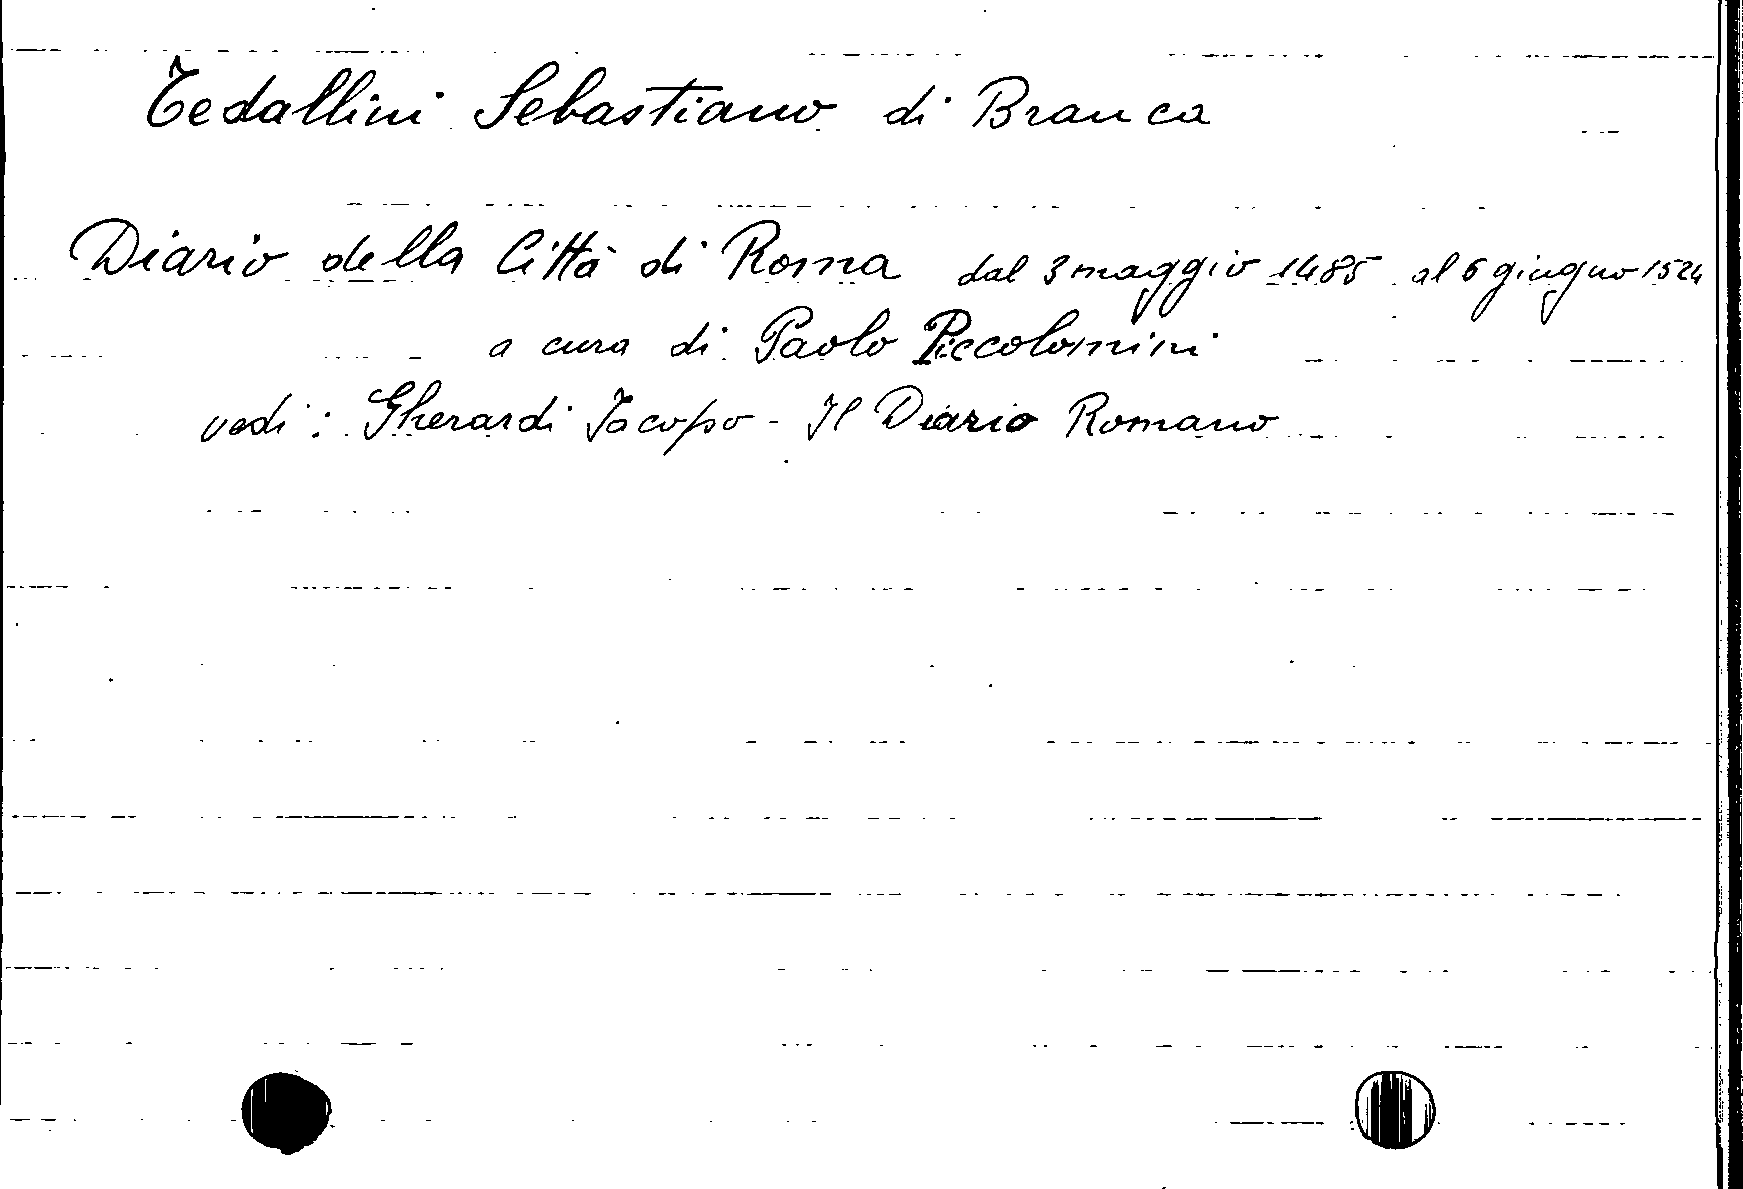 Tedallini Sebastiano di Branca
Diario della Città di Roma dal 3 maggio 1485 al 6 giugno 1524
a cura di Paolo Piccolomini
vedi: Gherardi Jacopo - Il Diario Romano